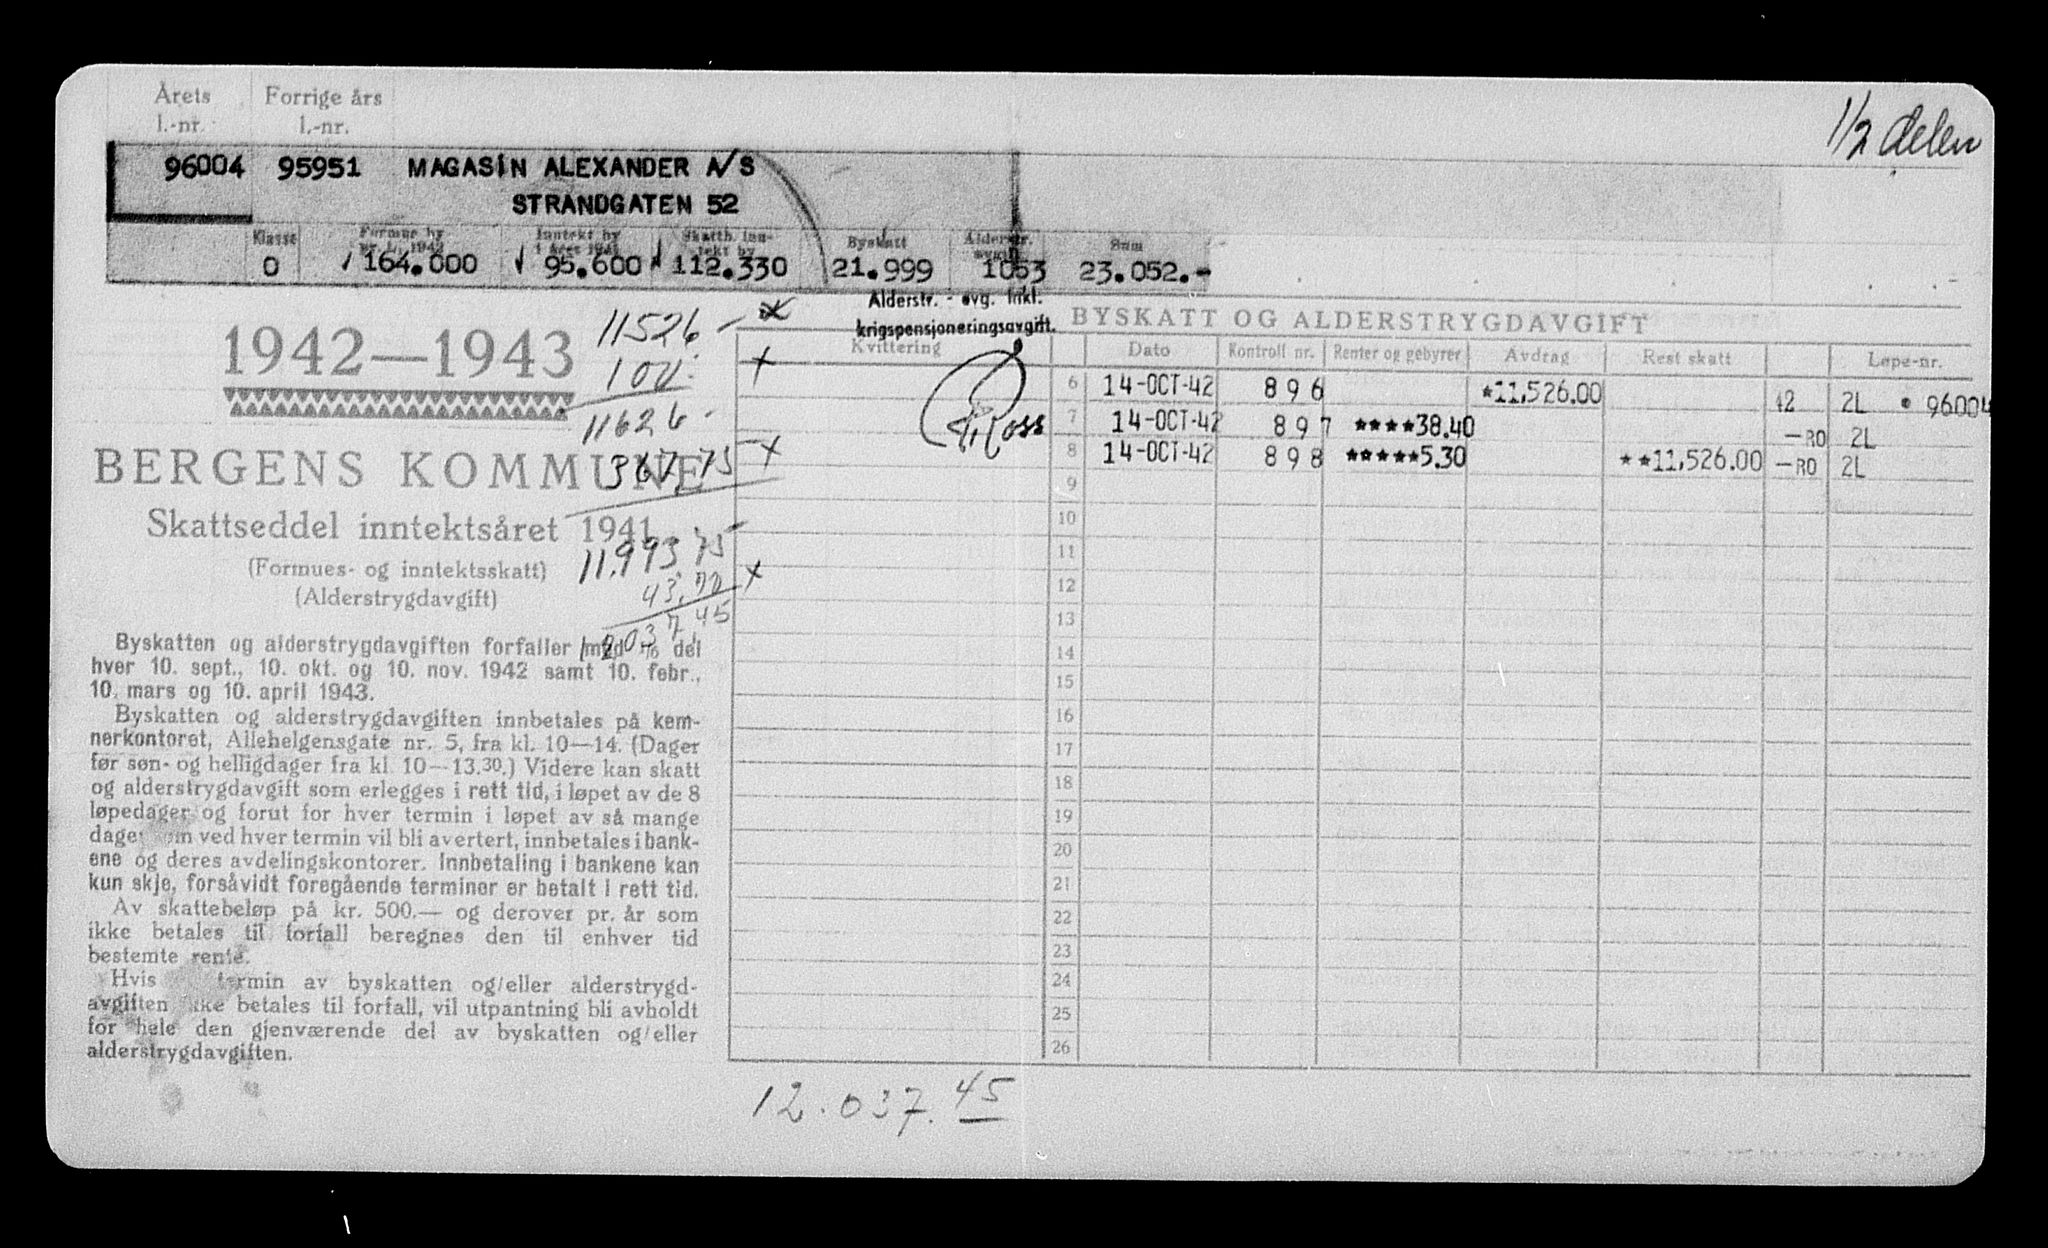 Årets
l.-nr.
Forrige års
l.-nr.
1/2 delen
96004 95951 MAGASIN ALEXANDER A/S
STRANDGATEN 52
Klasse
0
Formue by
pr. 1. 1. 1942
164.000
Inntekt by
i året 1941
95.600
Skattb. Inn-
tekt by
112.330
Byskatt
21.999
Alderstr.
avgift
1053
Sum
23.052.-
Alderstr. - avg. inkl.
krigspensjoneringsavgift.
1942—1943
11526 —
100.-
11626 -
367,75
11.993.75
43.70
12037.45
BERGENS KOMMUNE
Skattseddel inntektsåret 1941
(Formues- og inntektsskatt)
(Alderstrygdavgift)
Byskatten og alderstrygdavgiften forfaller med 1/6 del
hver 10. sept., 10. okt. og 10. nov. 1942 samt 10. febr.,
10. mars og 10. april 1943.
Byskatten og alderstrygdavgiften innbetales på kem-
nerkontoret, Allehelgensgate nr. 5, fra kl. 10—14. (Dager
før søn- og helligdager fra kl. 10—13.30.) Videre kan skatt
og alderstrygdavgift som erlegges i rett tid, i løpet av de 8
løpedager og forut for hver termin i løpet av så mange
dager som ved hver termin vil bli avertert, innbetales i bank-
ene og deres avdelingskontorer. Innbetaling i bankene kan
kun skje, forsåvidt foregående terminer er betalt i rett tid.
Av skattebeløp på kr. 500.— og derover pr. år som
ikke betales til forfall beregnes den til enhver tid
bestemte rente.
Hvis termin av byskatten og/eller alderstrygd-
avgiften ikke betales til forfall, vil utpantning bli avholdt
for hele den gjenværende del av byskatten og/eller
alderstrygdavgiften.
BYSKATT OG ALDERSTRYGDAVGIFT
Kvittering Dato Kontroll nr. Renter og gebyrer Avdrag Rest skatt Løpe-nr.
6 14-OCT-42 896 *11,526.00 42 2L • 96004
7 14-OCT-42 897 ****38.40 —RO 2L
8 14-OCT-42 898 *****5.30 **11,526.00 —RO 2L
9
10
11
12
13
14
15
16
17
18
19
20
21
22
23
24
25
26
12.037.45